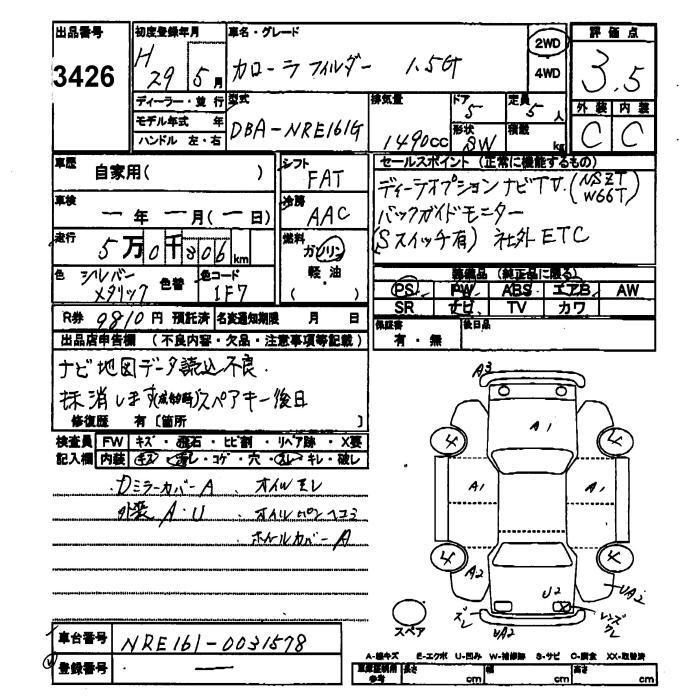 出品番号
3426
初度登録年月
H29 5月
車名・グレード
カローラ フィルダー 1.5G
2WD
4WD
評価点
3.5
ディーラー・並行
モデル年式 年
ハンドル 左・右
型式
DBA-NRE161G
排気量
1490cc
ドア
5
形状
SW
定員
5人
積載
kg
外装
C
内装
C
車歴
自家用( )
シフト
FAT
セールスポイント(正常に機能するもの)
ディーラオプション ナビTV (NSZT W66T)
バックガイドモニター
(Sスイッチ有) 社外ETC
車検
一年 一月(一日)
冷房
AAC
走行
5万0千806km
燃料
ガソリン
軽・油
( )
色
シルバーメタリック
色替
色コード
1F7
装備品 (純正品に限る)
PS PW ABS エアB AW
SR ナビ TV カワ
R券 9810円 預託済 名変通知期限 月 日
保証書
有・無
後日品
出品店申告欄 (不良内容・欠品・注意事項等記載)
ナビ地図データ読込不良.
抹消します(成約時)スペアキー後日
修復歴 有〔箇所 〕
検査員
記入欄
FW キズ・飛石・ヒビ割・リペア跡・X要
内装 キズ・汚レ・コゲ・穴・スレ・キレ・破レ
・Dミラーカバー A ・オイルモレ
外装 A・U ・オイルパンヘコミ
・ホイールカバー A
A3
A1
4
4
A1
A1
4
4
A2
U2
UA2
ズレ
UA2
レンズ
スペア
車台番号
NRE161-0031578
登録番号
—
A-線キズ E-エクボ U-凹み W-補修跡 S-サビ C-腐食 XX-取替済
車庫証明用
参考
長さ cm 幅 cm 高さ cm